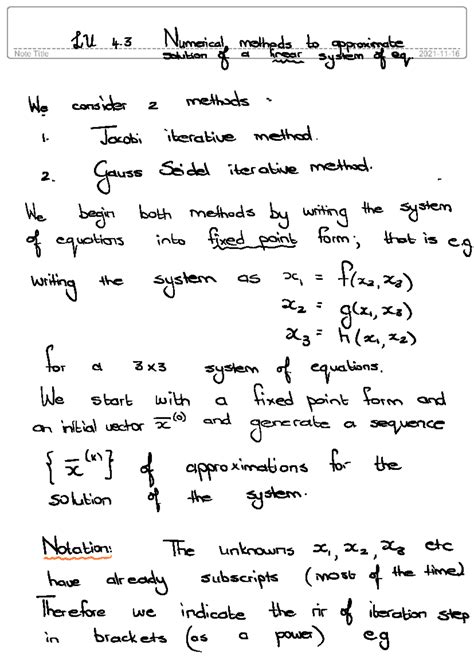 LU 4.3 Numerical methods to approximate
solution of a linear system of eq.
Note Title 2021-11-16
We consider 2 methods.
1. Jacobi iterative method.
2. Gauss Seidel iterative method.
We begin both methods by writing the system
of equations into fixed point form; that is e.g
writing the system as x₁ = f(x₂, x₃)
x₂ = g(x₁, x₃)
x₃ = h(x₁, x₂)
for a 3x3 system of equations.
We start with a fixed point form and
an initial vector x̄⁽⁰⁾ and generate a sequence
{x̄⁽ᵏ⁾} of approximations for the
solution of the system.
Notation: The unknowns x₁, x₂, x₃ etc
have already subscripts (most of the time)
Therefore we indicate the nr of iteration step
in brackets (as a power) e.g